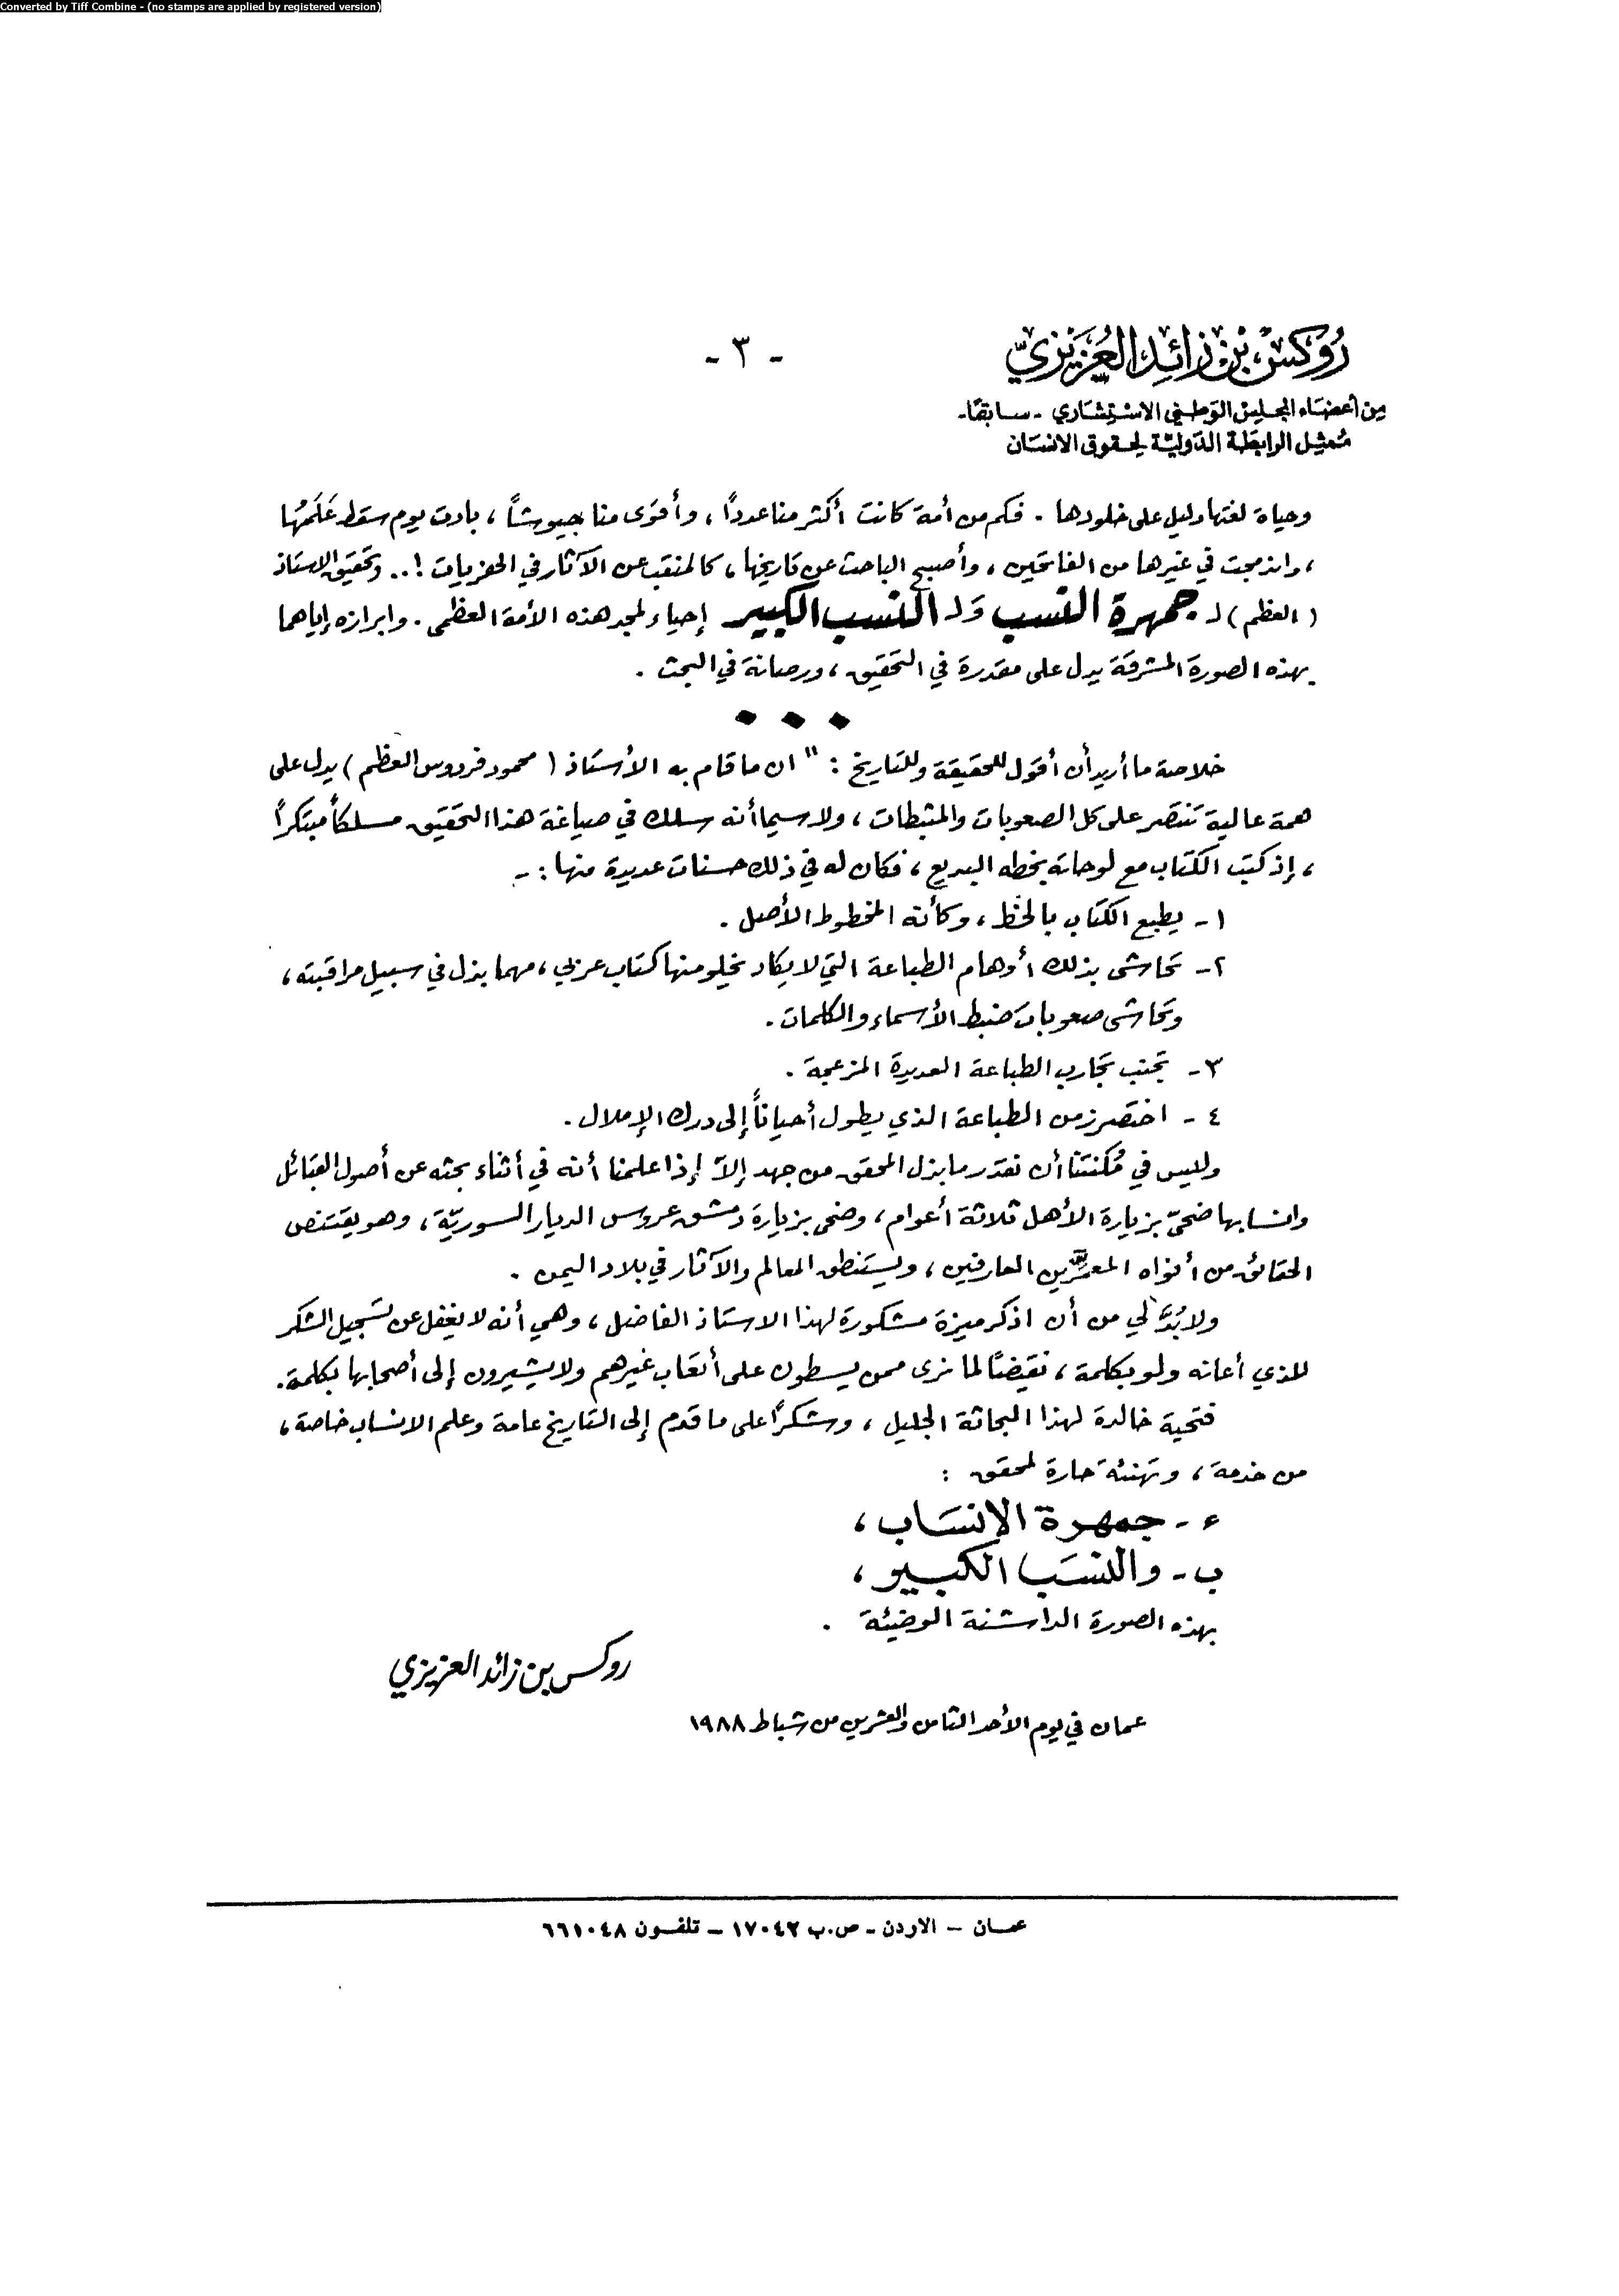 Converted by Tiff Combine - (no stamps are applied by registered version)
رُوكسْ بْن زائِد العُزَيزيّ
- ٣ -
مِن أعضَاء المجلِس الوَطني الاسْتِشاري - سابقًا-
مُمثِل الرابطَة الدَّوليَّة لحقوق الانسَان
وحياة لغتها دليل على خلودها . فكم من أمة كانت أكثر منا عدداً ، وأقوَى منا جيوشاً ، بادت يوم سقط عَلَمُها
، واندمجت في غيرها من الفاتحين ، وأصبح الباحث عن تاريخها ، كالمنقب عن الآثار في الحفريات !.. وتحقيق الاستاذ
( العظم ) لـ جمهرة النسب وَلـ النسب الكبير إحياء لمجد هذه الأمة العظمى . وابرازه إياهما
بهذه الصورة المشرفة يدل على مقدرة في التحقيق ، ورصانة في البحث .
خلاصة ما أريد أن أقول للحقيقة وللتاريخ : " ان ما قام به الأستاذ ( محمود فردوس العظم ) يدل على
همة عالية تنتصر على كل الصعوبات والمثبطات ، ولا سيما أنه سلك في صياغة هذا التحقيق مسلكاً مبتكراً
، إذ كتب الكتاب مع لوحاته بخطه البديع ، فكان له في ذلك حسنات عديدة منها : -
١- يطبع الكتاب بالخط ، وكأنه المخطوط الأصل .
٢- تحاشى بذلك أوهام الطباعة التي لا يكاد يخلو منها كتاب عربي ، مهما بذل في سبيل مراقبته ،
وتحاشى صعوبات ضبط الأسماء والكلمات .
٣- تجنب تجارب الطباعة العديدة المزعجة .
٤- اختصر زمن الطباعة الذي يطول أحياناً إلى درك الإملال .
وليس في مُكنتنا أن نقدر ما بذل المحقق من جهد إلاّ إذا علمنا أنه في أثناء بحثه عن أصول القبائل
وانسابها ضحىّ بزيارة الأهل ثلاثة أعوام ، وضحى بزيارة دمشق عروس الديار السوريّة ، وهو يقتنص
الحقائق من أفواه المعمّرين العارفين ، ويستنطق المعالم والآثار في بلاد اليمن .
ولا بُدَّ لي من أن اذكر ميزة مشكورة لهذا الاستاذ الفاضل ، وهي أنه لا يغفل عن تسجيل الشكر
للذي أعانه ولو بكلمة ، نقيضًا لما نرى ممن يسطون على أتعاب غيرهم ولا يشيرون إلى أصحابها بكلمة .
فتحية خالدة لهذا البحاثة الجليل ، وشكرًا على ما قدم إلى التاريخ عامة وعلم الانساب خاصة ،
من خدمة ، وتهنئة حارة لمحقق :
ء - جمهرة الانسَاب ،
ب - والنسَب الكبير ،
بهذه الصورة الراشنة الوضيئة .
روكس بن زائد العزيزي
عمان في يوم الأحد الثامن والعشرين من شباط ١٩٨٨
عمـان – الاردن – ص.ب ١٧٠٤٢ – تلفـون ٦٦١٠٤٨